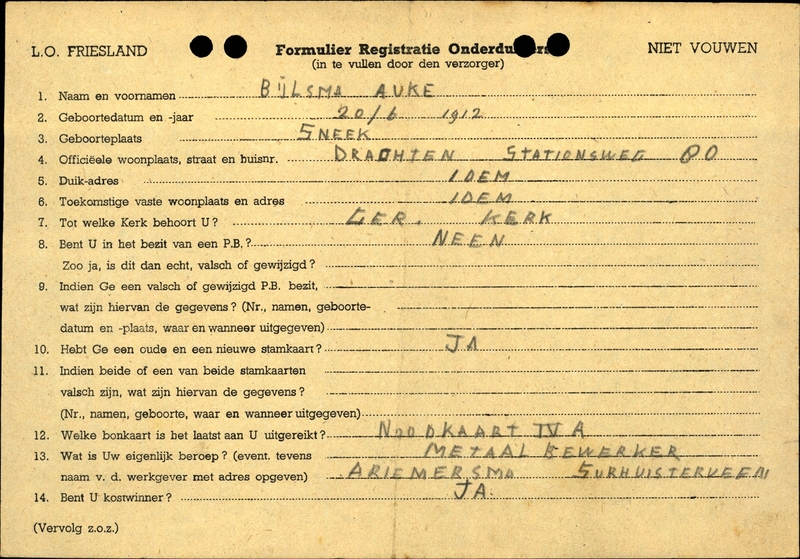 L.O. FRIESLAND Formulier Registratie Onderdu ers NIET VOUWEN
(in te vullen door den verzorger)
1. Naam en voornamen BIJLSMA AUKE
2. Geboortedatum en -jaar 20/6 1912
3. Geboorteplaats SNEEK
4. Officiëele woonplaats, straat en huisnr. DRACHTEN STATIONSWEG 80
5. Duik-adres IDEM
6. Toekomstige vaste woonplaats en adres IDEM
7. Tot welke Kerk behoort U? GER. KERK
8. Bent U in het bezit van een P.B.? NEEN
Zoo ja, is dit dan echt, valsch of gewijzigd?
9. Indien Ge een valsch of gewijzigd P.B. bezit,
wat zijn hiervan de gegevens? (Nr., namen, geboorte-
datum en -plaats, waar en wanneer uitgegeven)
10. Hebt Ge een oude en een nieuwe stamkaart? JA
11. Indien beide of een van beide stamkaarten
valsch zijn, wat zijn hiervan de gegevens?
(Nr., namen, geboorte, waar en wanneer uitgegeven)
12. Welke bonkaart is het laatst aan U uitgereikt? NOODKAART IV A
13. Wat is Uw eigenlijk beroep? (event. tevens METAAL BEWERKER
naam v. d. werkgever met adres opgeven) ARIEMERSMA SURHUISTERVEEN
14. Bent U kostwinner? JA.
(Vervolg z.o.z.)